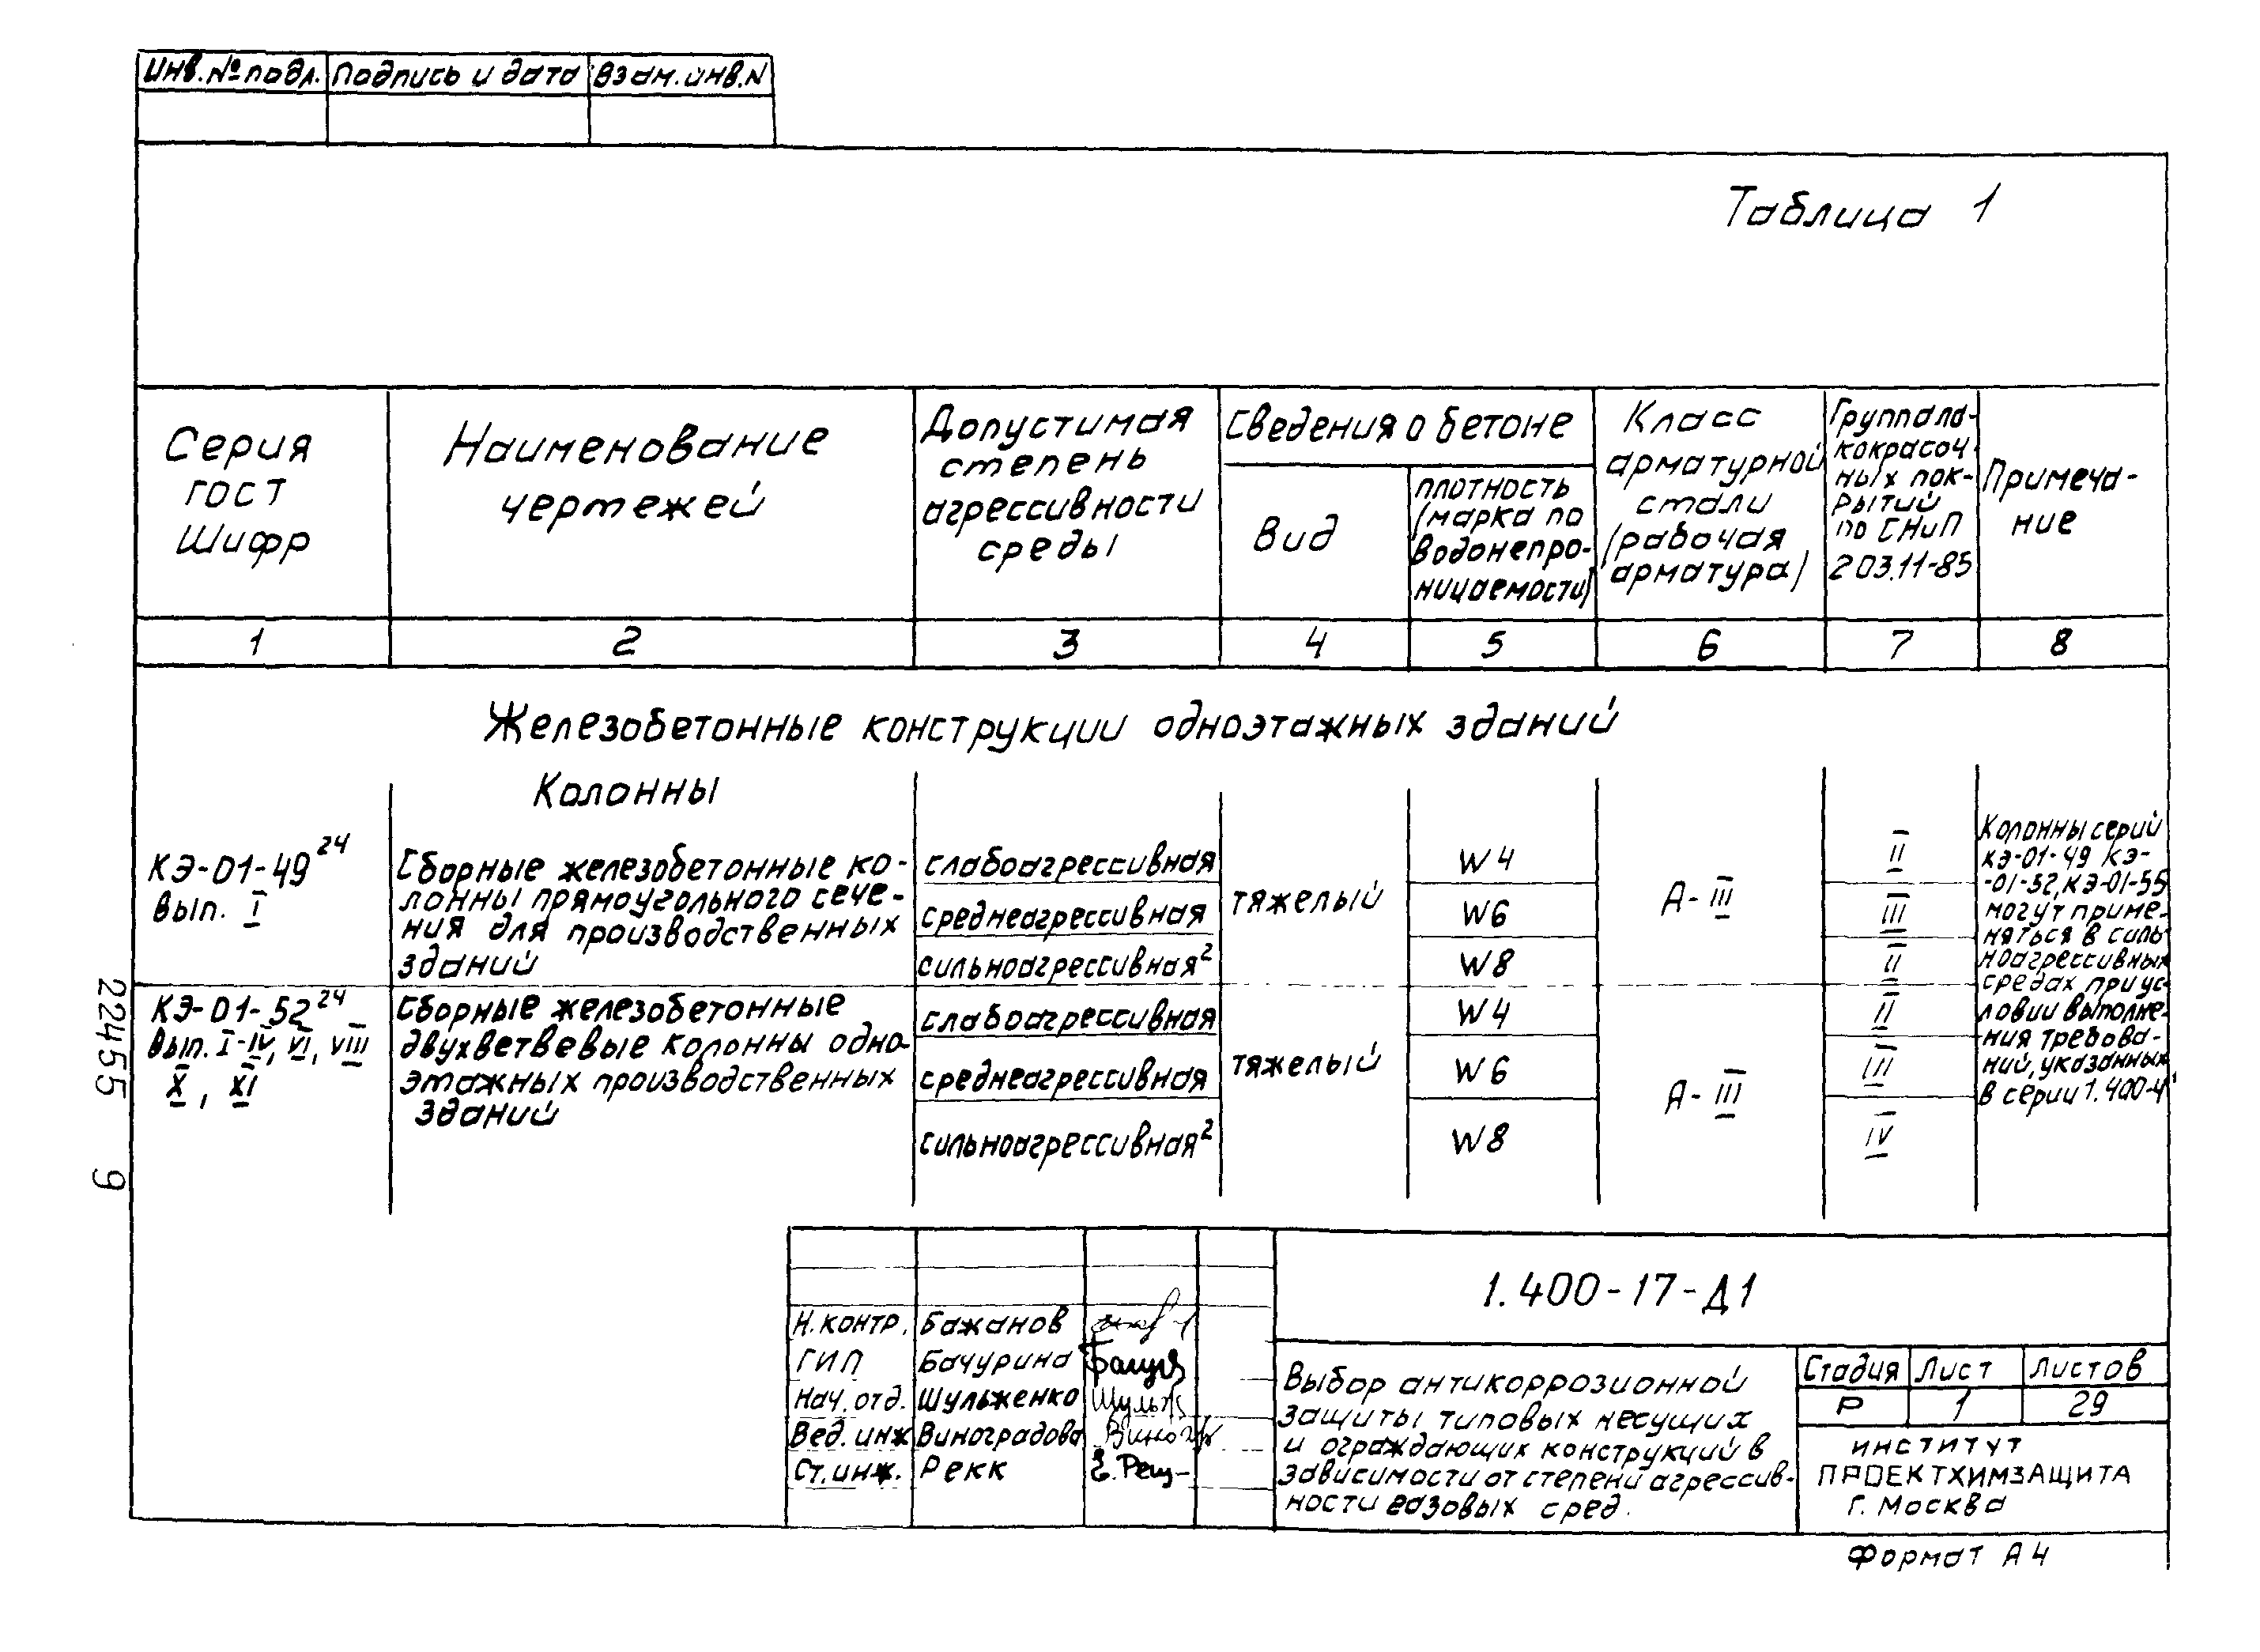 Инв. № подл. Подпись и дата Взам. инв. N
Таблица 1
Серия
ГОСТ
Шифр
Наименование
чертежей
Допустимая
степень
агрессивности
среды
Сведения о бетоне
Вид
плотность
(марка по
водонепро-
ницаемости)
Класс
арматурной
стали
(рабочая
арматура)
Группа ла-
кокрасоч-
ных пок-
рытий
по СНиП
2 03.11-85
Примеча-
ние
1 2 3 4 5 6 7 8
Железобетонные конструкции одноэтажных зданий
Колонны
КЭ-01-49 24
Вып. I
Сборные железобетонные ко-
лонны прямоугольного сече-
ния для производственных
зданий
слабоагрессивная
среднеагрессивная
сильноагрессивная 2
тяжелый
W4
W6
W8
А-III
II
III
II
Колонны серий
КЭ-01-49 КЭ-
-01-52, КЭ-01-55
могут приме-
няться в силь
ноагрессивных
средах при ус-
ловии выполне-
ния требова-
ний, указанных
в серии 1.400-4
КЭ-01-52 24
Вып. I-IV, VI, VIII
X, XI
Сборные железобетонные
двухветвевые колонны одно-
этажных производственных
зданий
слабоагрессивная
среднеагрессивная
сильноагрессивная 2
тяжелый
W4
W6
W8
А-III
II
III
IV
22455 9
1.400-17-Д1
Н. контр. Бажанов
ГИП Бачурина
Нач. отд. Шульженко Шульж
Вед. инж Виноградова
Ст. инж. Рекк
Выбор антикоррозионной
защиты типовых несущих
и ограждающих конструкций в
зависимости от степени агрессив-
ности газовых сред.
Стадия Лист Листов
Р 1 29
ИНСТИТУТ
ПРОЕКТХИМЗАЩИТА
г. Москва
Формат А4